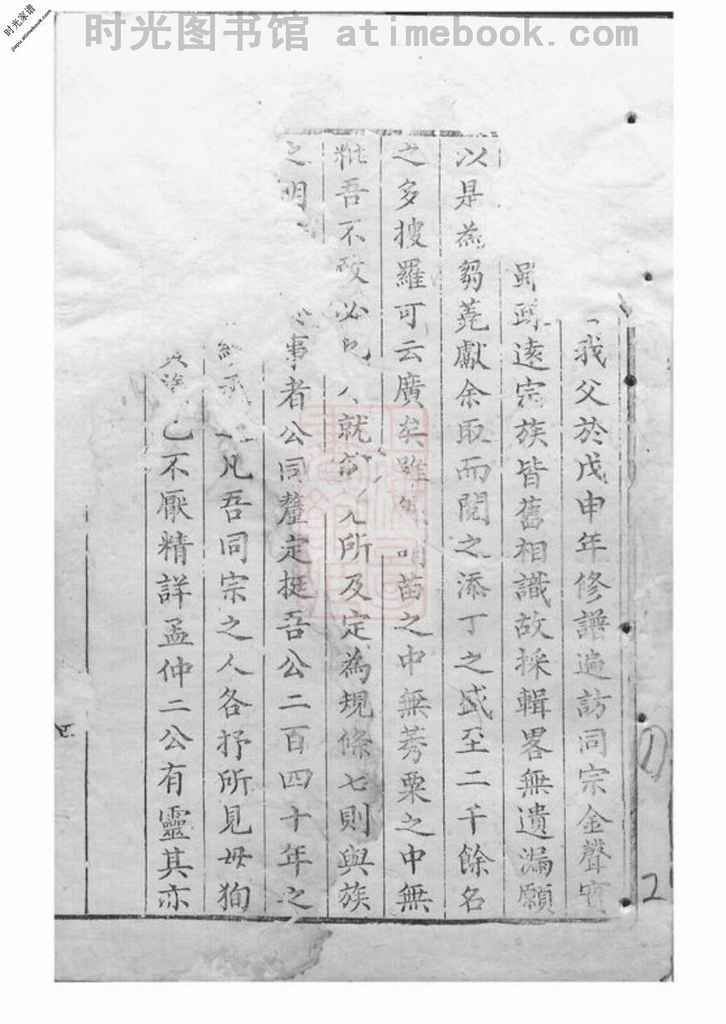 时光图书馆 atimebook.com
时光家谱
我父於戊申年修譜遍訪同宗金聲實
遠宗族皆舊相識故採輯畧無遺漏願
以是為芻蕘獻余取而閱之添丁之盛至二千餘名
之多搜羅可云廣矣雖 苗之中無莠粟之中無
粃吾不敢必 就 所及定為規條七則與族
之明 事者公同釐定挺吾公二百四十年之
凡吾同宗之人各抒所見毋狥
已不厭精詳孟仲二公有靈其亦
1
2